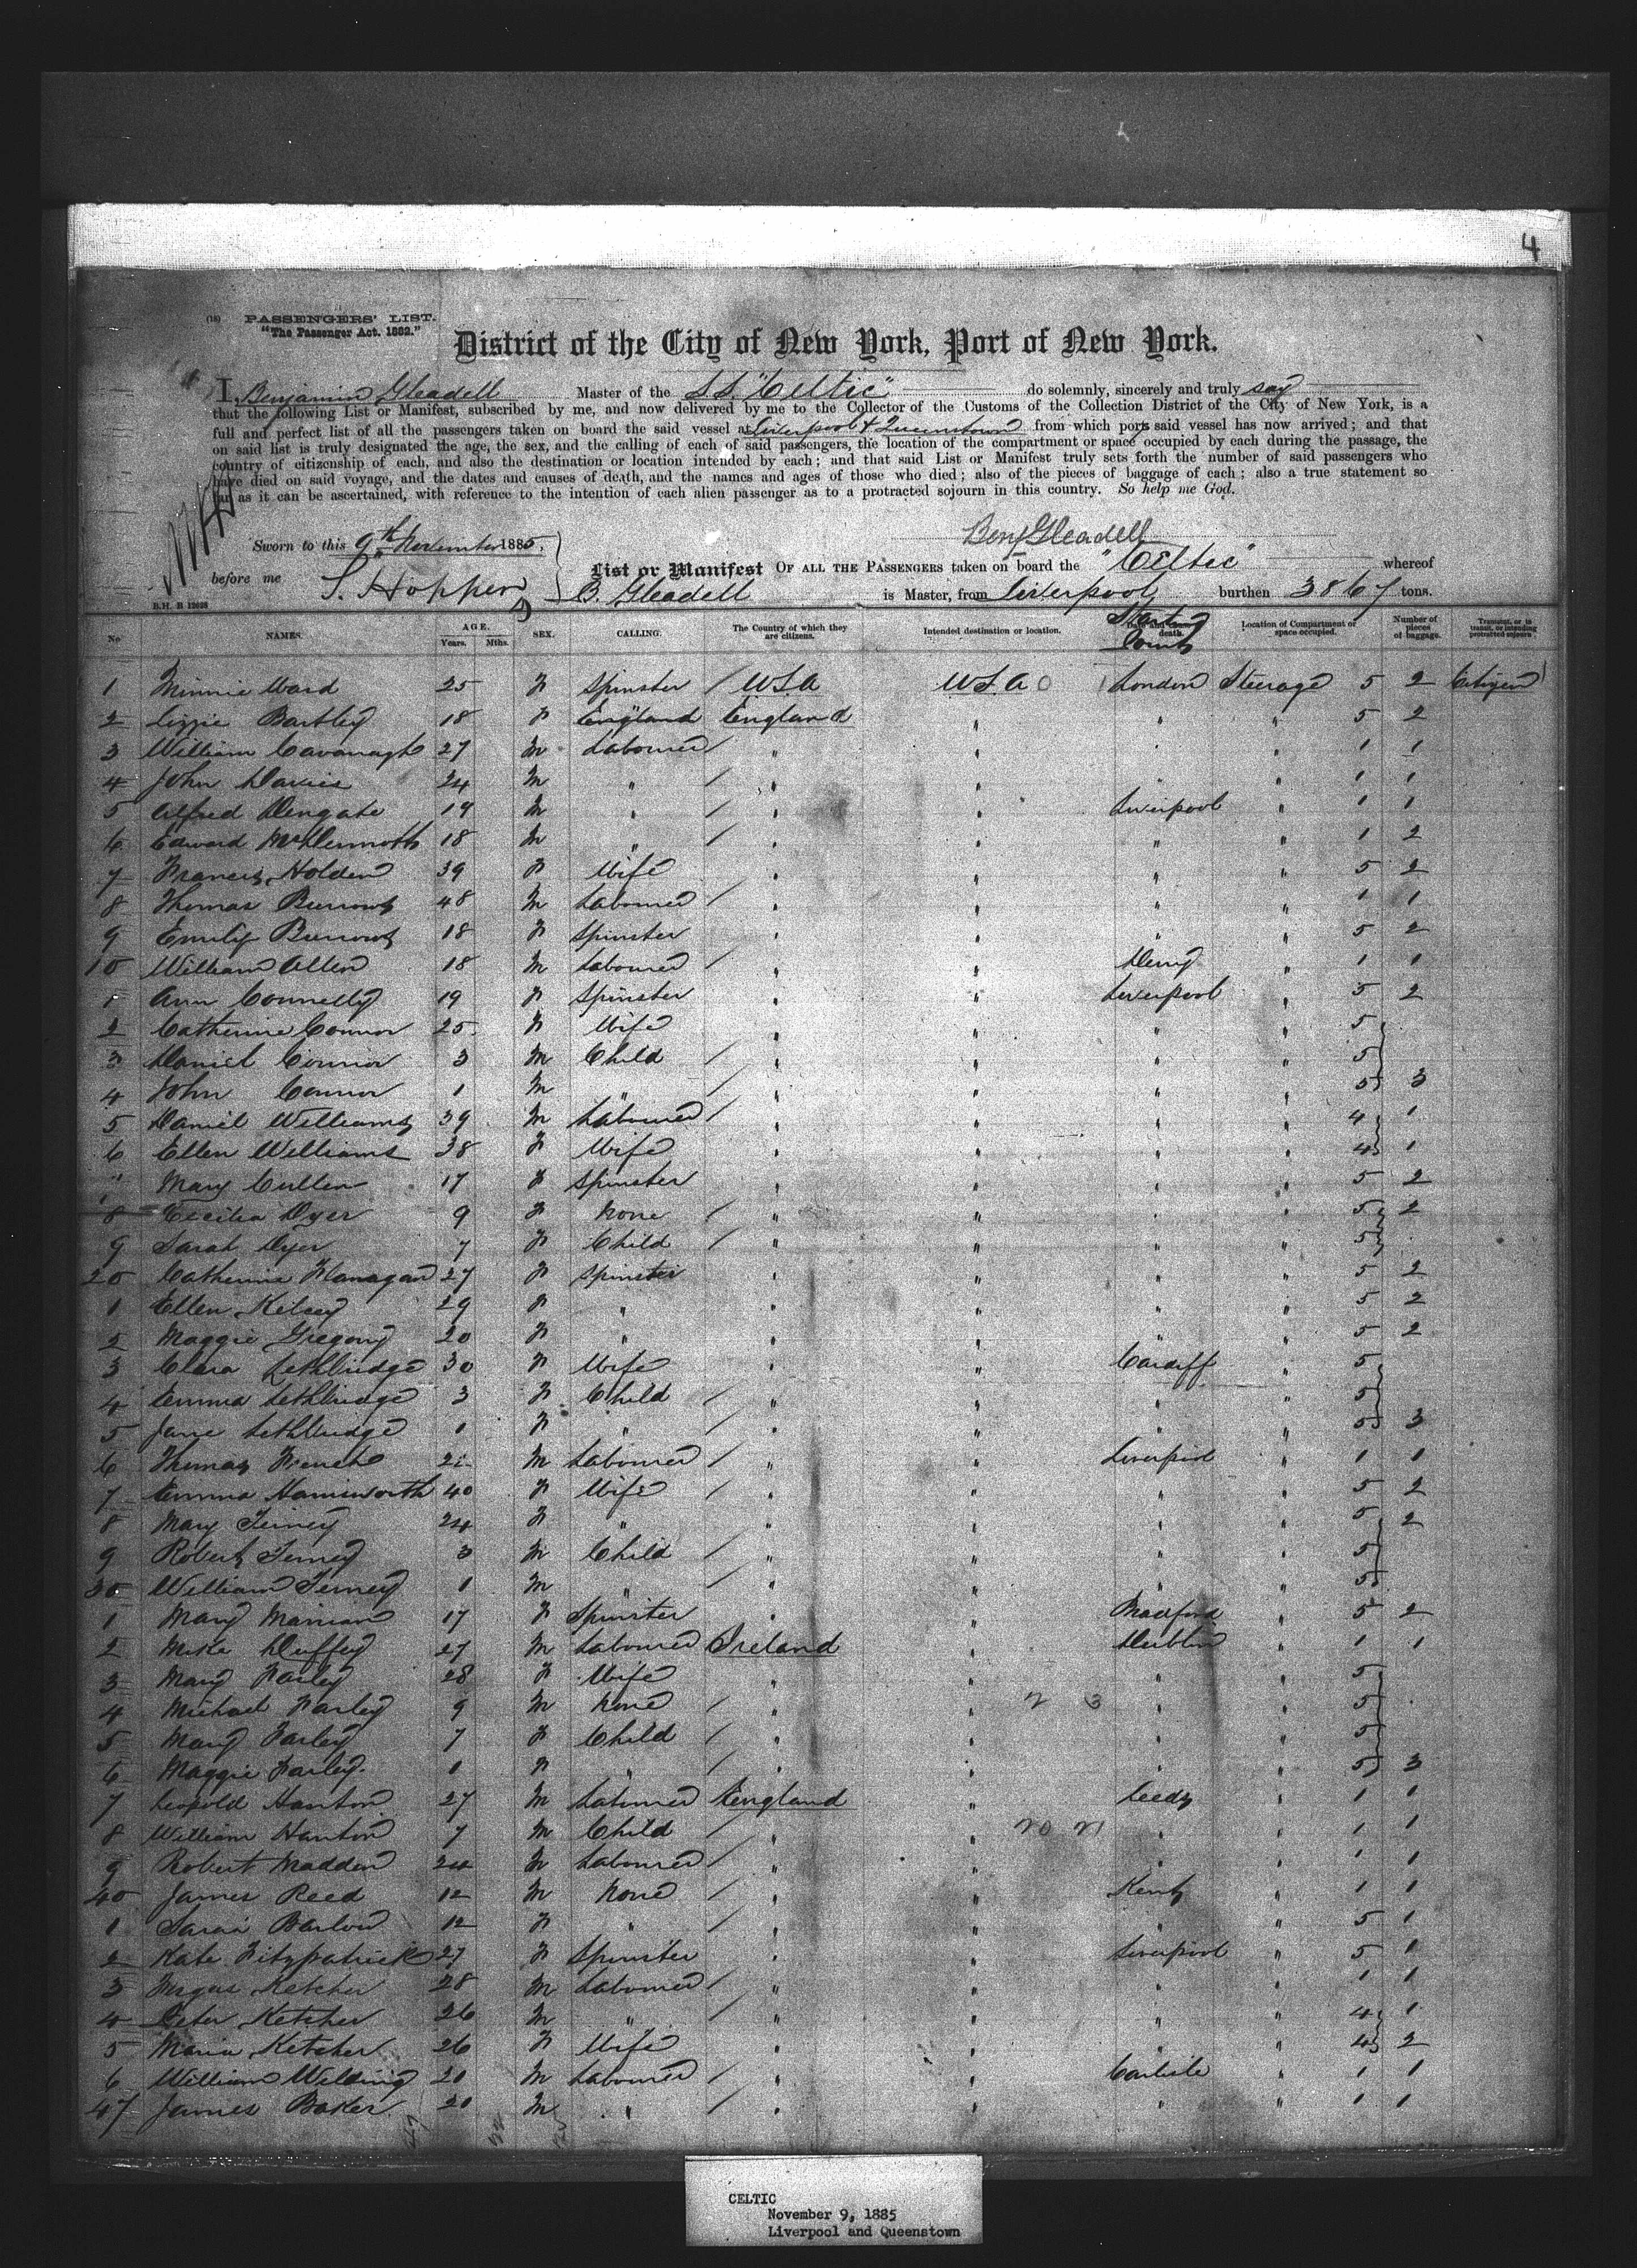 4
(18) PASSENGERS' LIST.
"The Passenger Act. 1882."
District of the City of New York, Port of New York.
I, Benjamin Gleadell Master of the S.S. "Celtic" do solemnly, sincerely and truly say
that the following List or Manifest, subscribed by me, and now delivered by me to the Collector of the Customs of the Collection District of the City of New York, is a
full and perfect list of all the passengers taken on board the said vessel at Liverpool & Queenstown from which ports said vessel has now arrived; and that
on said list is truly designated the age, the sex, and the calling of each of said passengers, the location of the compartment or space occupied by each during the passage, the
country of citizenship of each, and also the destination or location intended by each; and that said List or Manifest truly sets forth the number of said passengers who
have died on said voyage, and the dates and causes of death, and the names and ages of those who died; also of the pieces of baggage of each; also a true statement so
far as it can be ascertained, with reference to the intention of each alien passenger as to a protracted sojourn in this country. So help me God.
Benj Gleadell
Sworn to this 9th November 1885.
before me S. Hopper
List or Manifest OF ALL THE PASSENGERS taken on board the "Celtic" whereof
B. Gleadell is Master, from Liverpool burthen 3867 tons.
B.H. B 12038
No NAMES. AGE. Years. Mths. SEX. CALLING. The Country of which they are citizens. Intended destination or location. Starting Point Location of Compartment or space occupied. Number of pieces of baggage. Transient, or in transit, or intending protracted sojourn
1 Minnie Ward 25 F Spinster / USA USA London Steerage 5 2 Citizen
2 Lizzie Bartley 18 F England England " " " 5 2
3 William Cavanagh 27 M Labourer / " " " " 1 1
4 John Davies 24 M " / " " " " 1 1
5 Alfred Dengate 19 M " / " " Liverpool " 1 1
6 Edward McDermott 18 M " / " " " " 1 2
7 Frances Holden 39 F Wife " " " " 5 2
8 Thomas Burrows 48 M Labourer / " " " " 1 1
9 Emily Burrows 18 F Spinster " " " " 5 2
10 William Allen 18 M Labourer / " " Derry " 1 1
1 Ann Connelly 19 F Spinster " " Liverpool " 5 2
2 Catherine Connor 25 F Wife " " " " 5
3 Daniel Connor 3 M Child / " " " " 5
4 John Connor 1 M " " " " " 5 3
5 Daniel Williams 39 M Labourer / " " " " 4 1
6 Ellen Williams 38 F Wife " " " " 4 1
7 Mary Cullen 17 F Spinster " " " " 5 2
8 Cecilia Dyer 9 F None / " " " " 5 2
9 Sarah Dyer 7 F Child / " " " " 5
20 Catherine Flanagan 27 F Spinster " " " " 5 2
1 Ellen Kelsey 29 F " " " " " 5 2
2 Maggie Gregory 20 F " " " " " 5 2
3 Clara Lethbridge 30 F Wife " " Cardiff " 5
4 Emma Lethbridge 3 F Child / " " " " 5
5 Jane Lethbridge 1 F " / " " " " 5 3
6 Thomas French M Labourer / " " Liverpool " 1 1
7 Emma Hainsworth 40 F Wife / " " " " 5 2
8 Mary Tierney 24 F " " " " " 5 2
9 Robert Tierney 3 M Child / " " " " 5
30 William Tierney 1 M " / " " " " 5
1 Mary 17 F Spinster " " Bradford " 5 2
2 Mike Duffey 27 M Labourer Ireland " Dublin " 1 1
3 Mary Farley 28 F Wife " " " " 5
4 Michael Farley 9 M None / " " 2 3 " " 5
5 Mary Farley 7 F Child / " " " " 5
6 Maggie Farley 1 F " / " " " " 5 3
7 Leopold Hanton 27 M Labourer England " Leeds " 1 1
8 William Hanton 7 M Child / " " 20 21 " " 1 1
9 Robert Madden 24 M Labourer / " " " " 1 1
40 James Reed 12 M None / " " Kent " 1 1
1 Sarah Barlow 12 F " / " " " " 5 1
2 Kate Fitzpatrick 27 F Spinster " " Liverpool " 5 1
3 Fergus Ketcher 28 M Labourer / " " " " 1 1
4 Peter Ketcher 26 M " / " " " " 4 1
5 Maria Ketcher 26 F Wife " " " " 4 2
6 William Welding 20 M Labourer / " " Carlisle " 1 1
47 James Baker 20 M " / " " " " 1 1
CELTIC
November 9, 1885
Liverpool and Queenstown